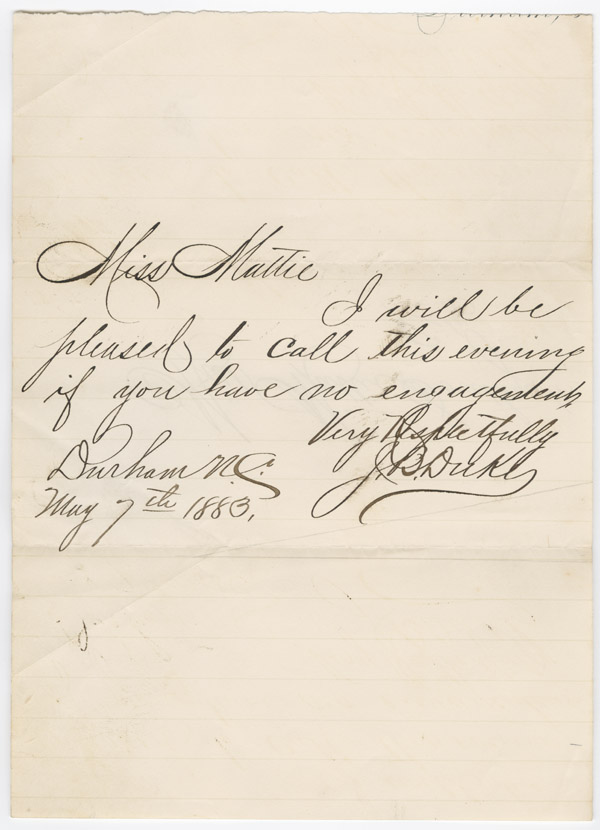 Durham,
Miss Mattie
I will be
pleased to call this evening
if you have no engagement,
Very Respectfully
J. B. Duke
Durham N.C.
May 7th 1883.